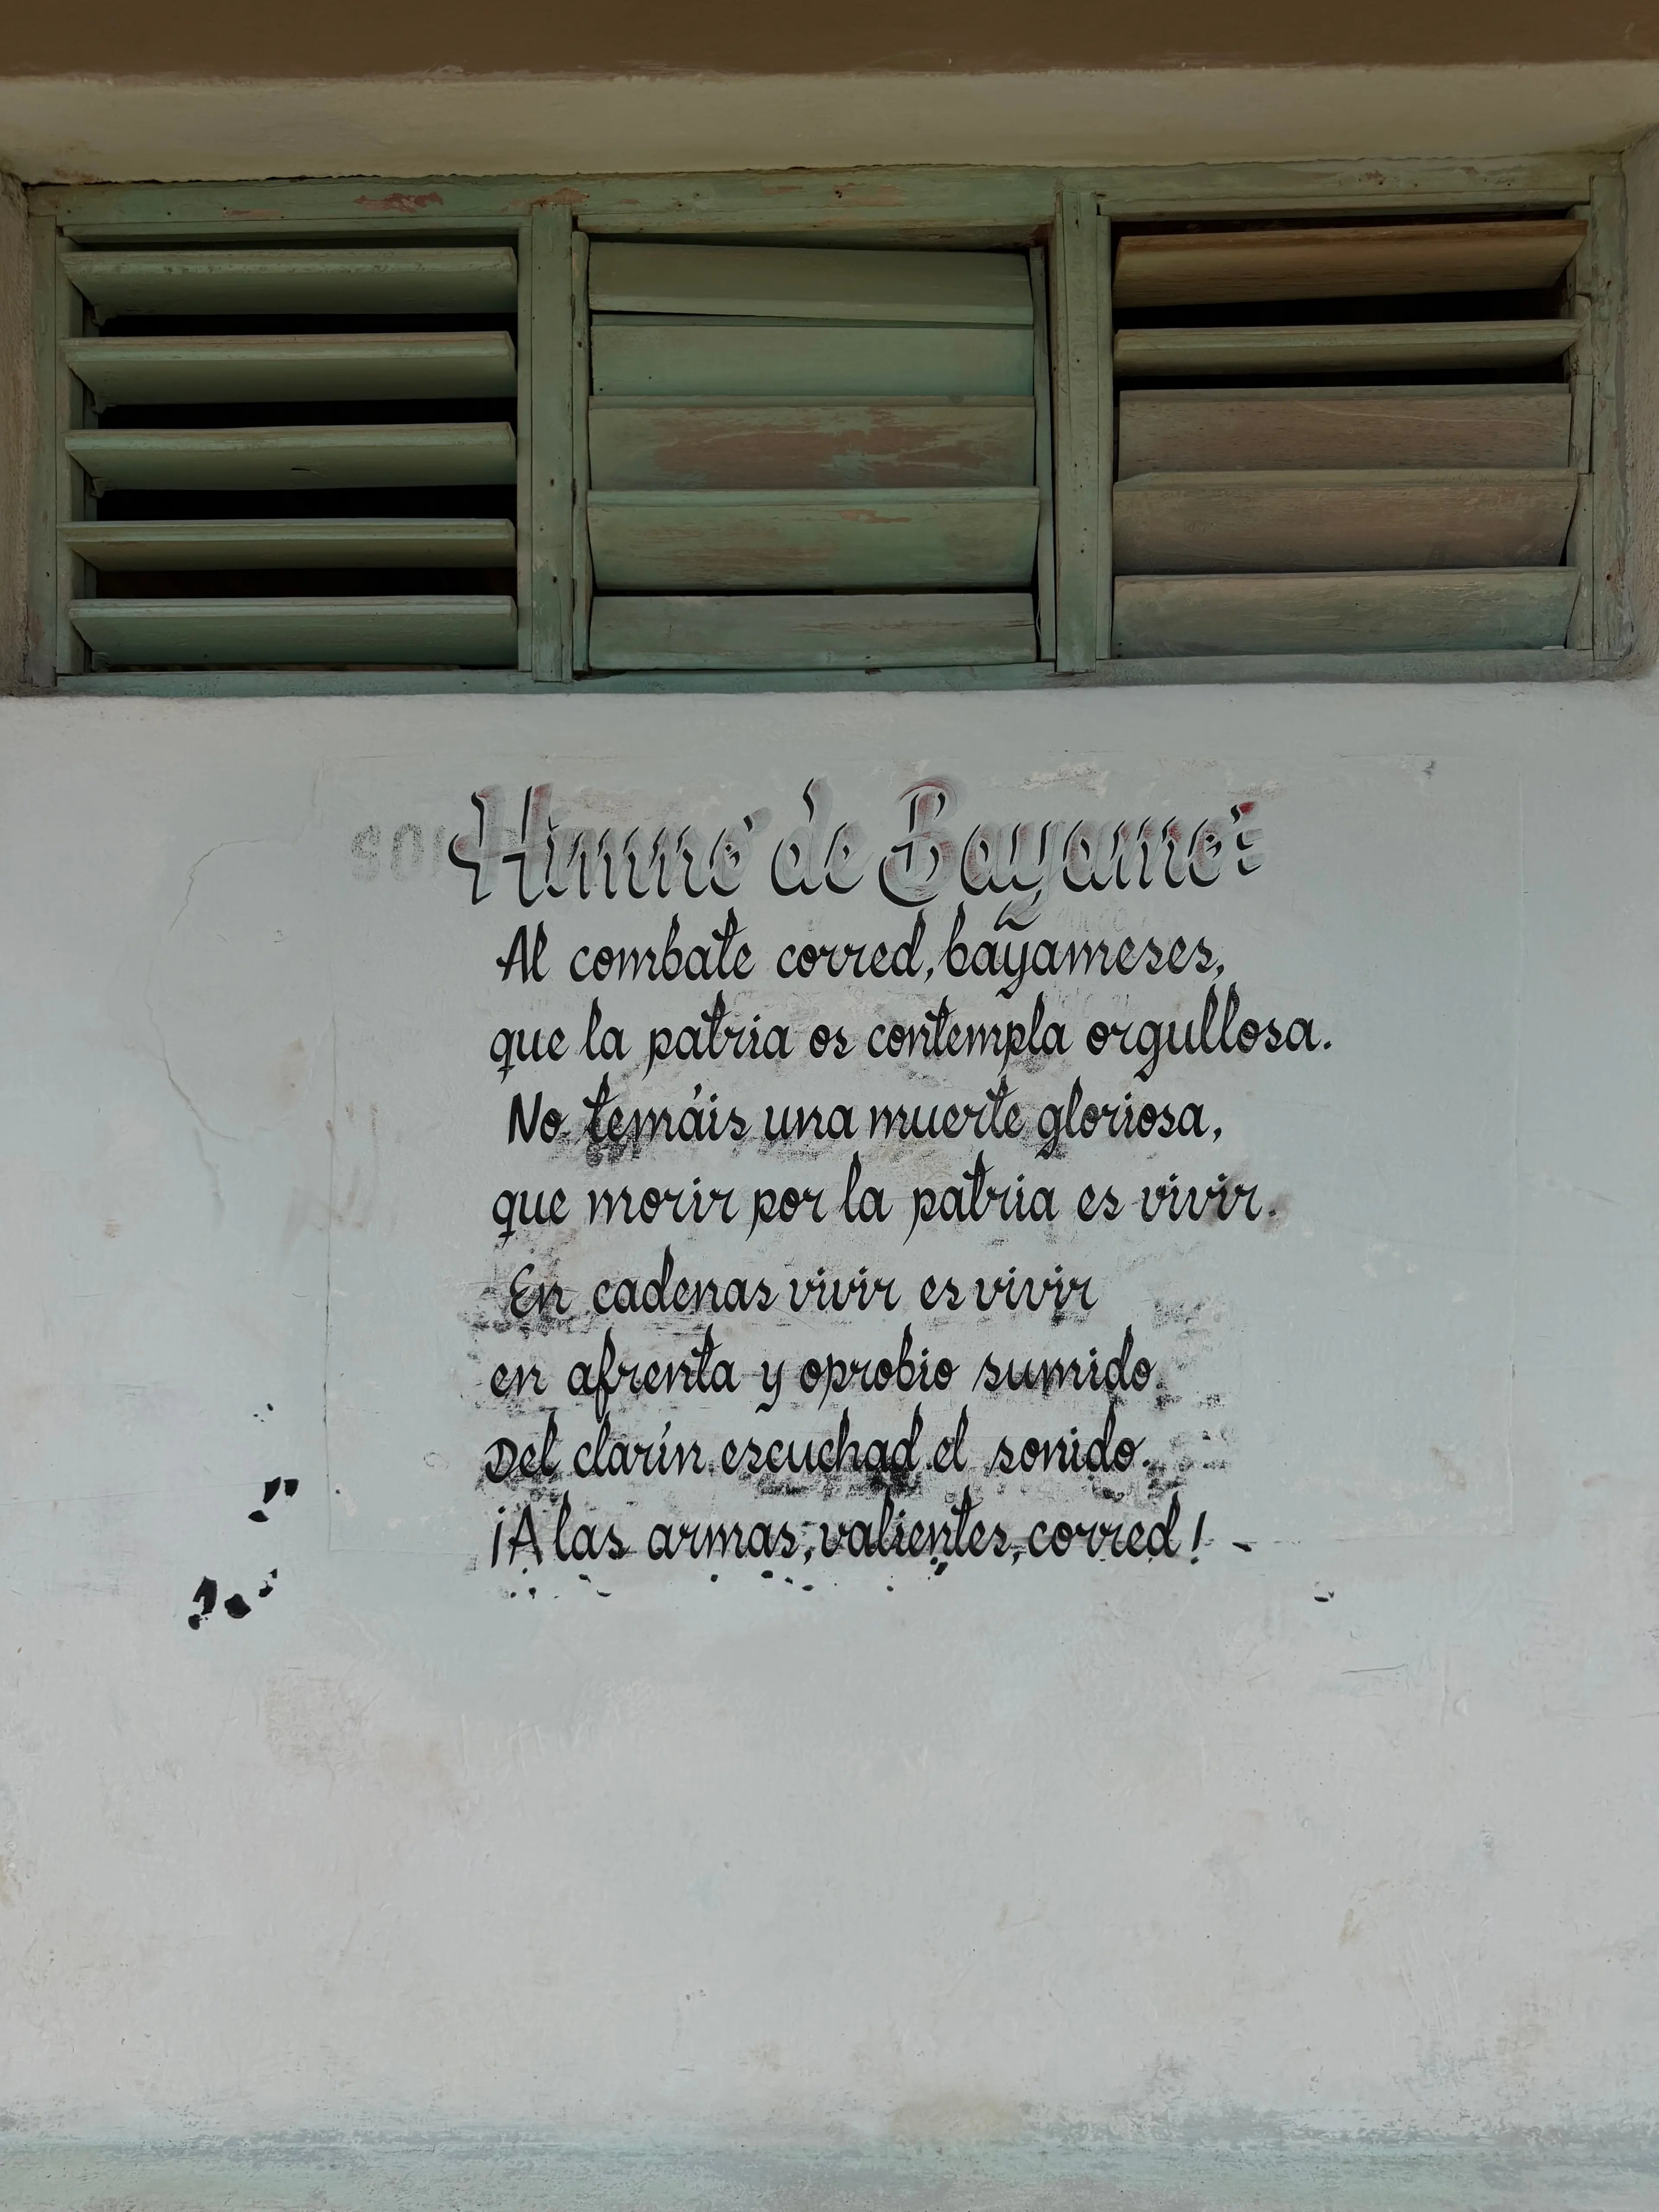 Himno de Bayamo:
Al combate corred, bayameses,
que la patria os contempla orgullosa.
No temáis una muerte gloriosa,
que morir por la patria es vivir.
En cadenas vivir es vivir
en afrenta y oprobio sumido.
Del clarín escuchad el sonido.
¡A las armas, valientes, corred!